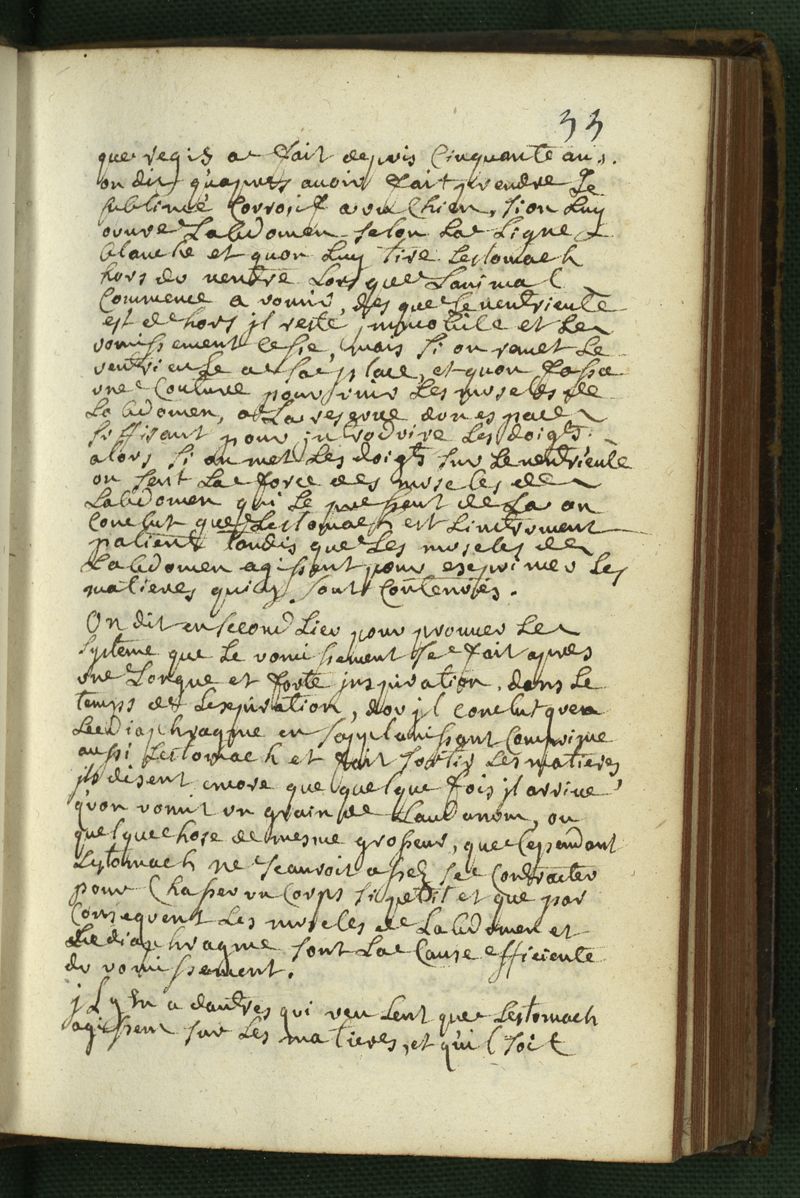 33
que regis a fait depuis Cinquante ans.
on dit qu'apres avoir fait prendre le
sublimé Corrosif a un Chien, si on luy
ouvre Labdomen selon La Ligne
blanche et quon luy tire Lestomach
hors du ventre Lorsque Lanimal
Commence a vomir, des que Le ventricule
est dehors jl reste jmmobile et Le
vomissement Cesse, mais si on remet Le
ventricule a sa place, et quon fasse
une Couture pour unir Les muscles de
Labdomen, a La reserve dun espace
suffisant pour introduire Les doigts
alors si on met Les doigts sur Le ventricule
on sent La force des muscles de
Labdomen qui Le pressent de La on
Conclut que Lestomach est Linstrument
patient tandis que Les muscles de
Labdomen agissent pour exprimer Les
matieres qui y sont Contenues.
On dit en second Lieu pour prouver Le
systeme que Le vomissement se fait apres
une Longue et forte jnspiration, dans Le
temps de Lexpiration, dou jl conclut que
Le diaphragme en sapplanissant Comprime
aussi Lestomach et fait sortir Les matieres
jls disent encore que quelque fois jl arrive
qu'on vomit un grain de Laudanum, ou
quelque chose de mesme grosseur, que Cependant
Lestomach ne scauroit assez se Contracter
pour Chasser un Corps si petit et que par
Consequent Les muscles de Labdomen et
Le diaphragme sont La Cause efficiente
du vomissement.
jl y en a dautres qui veulent que Lestomach
agissent sur Les matieres, et qu'il soit